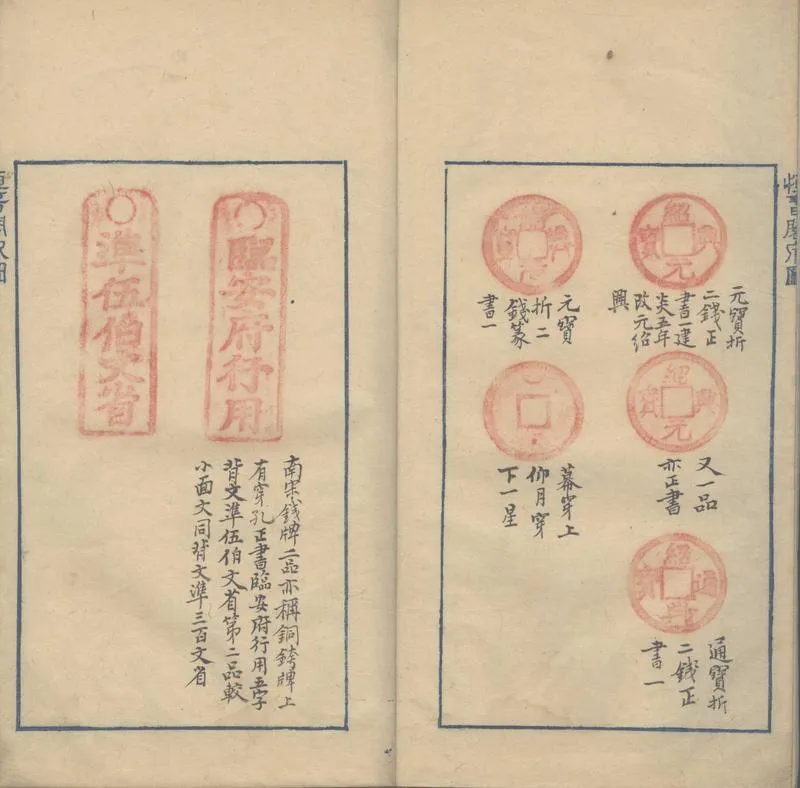 紹興元寶
元寶折
二錢正
書一建
炎五年
改元紹
興
紹興元寶
又一品
亦正書
紹興通寶
通寶折
二錢正
書一
元寶
折二
錢篆
書一
幕穿上
仰月穿
下一星
臨安府行用
準伍伯文省
南宋錢牌二品亦稱銅銙牌上
有穿孔正書臨安府行用五字
背文準伍伯文省第二品較
小面文同背文準三百文省